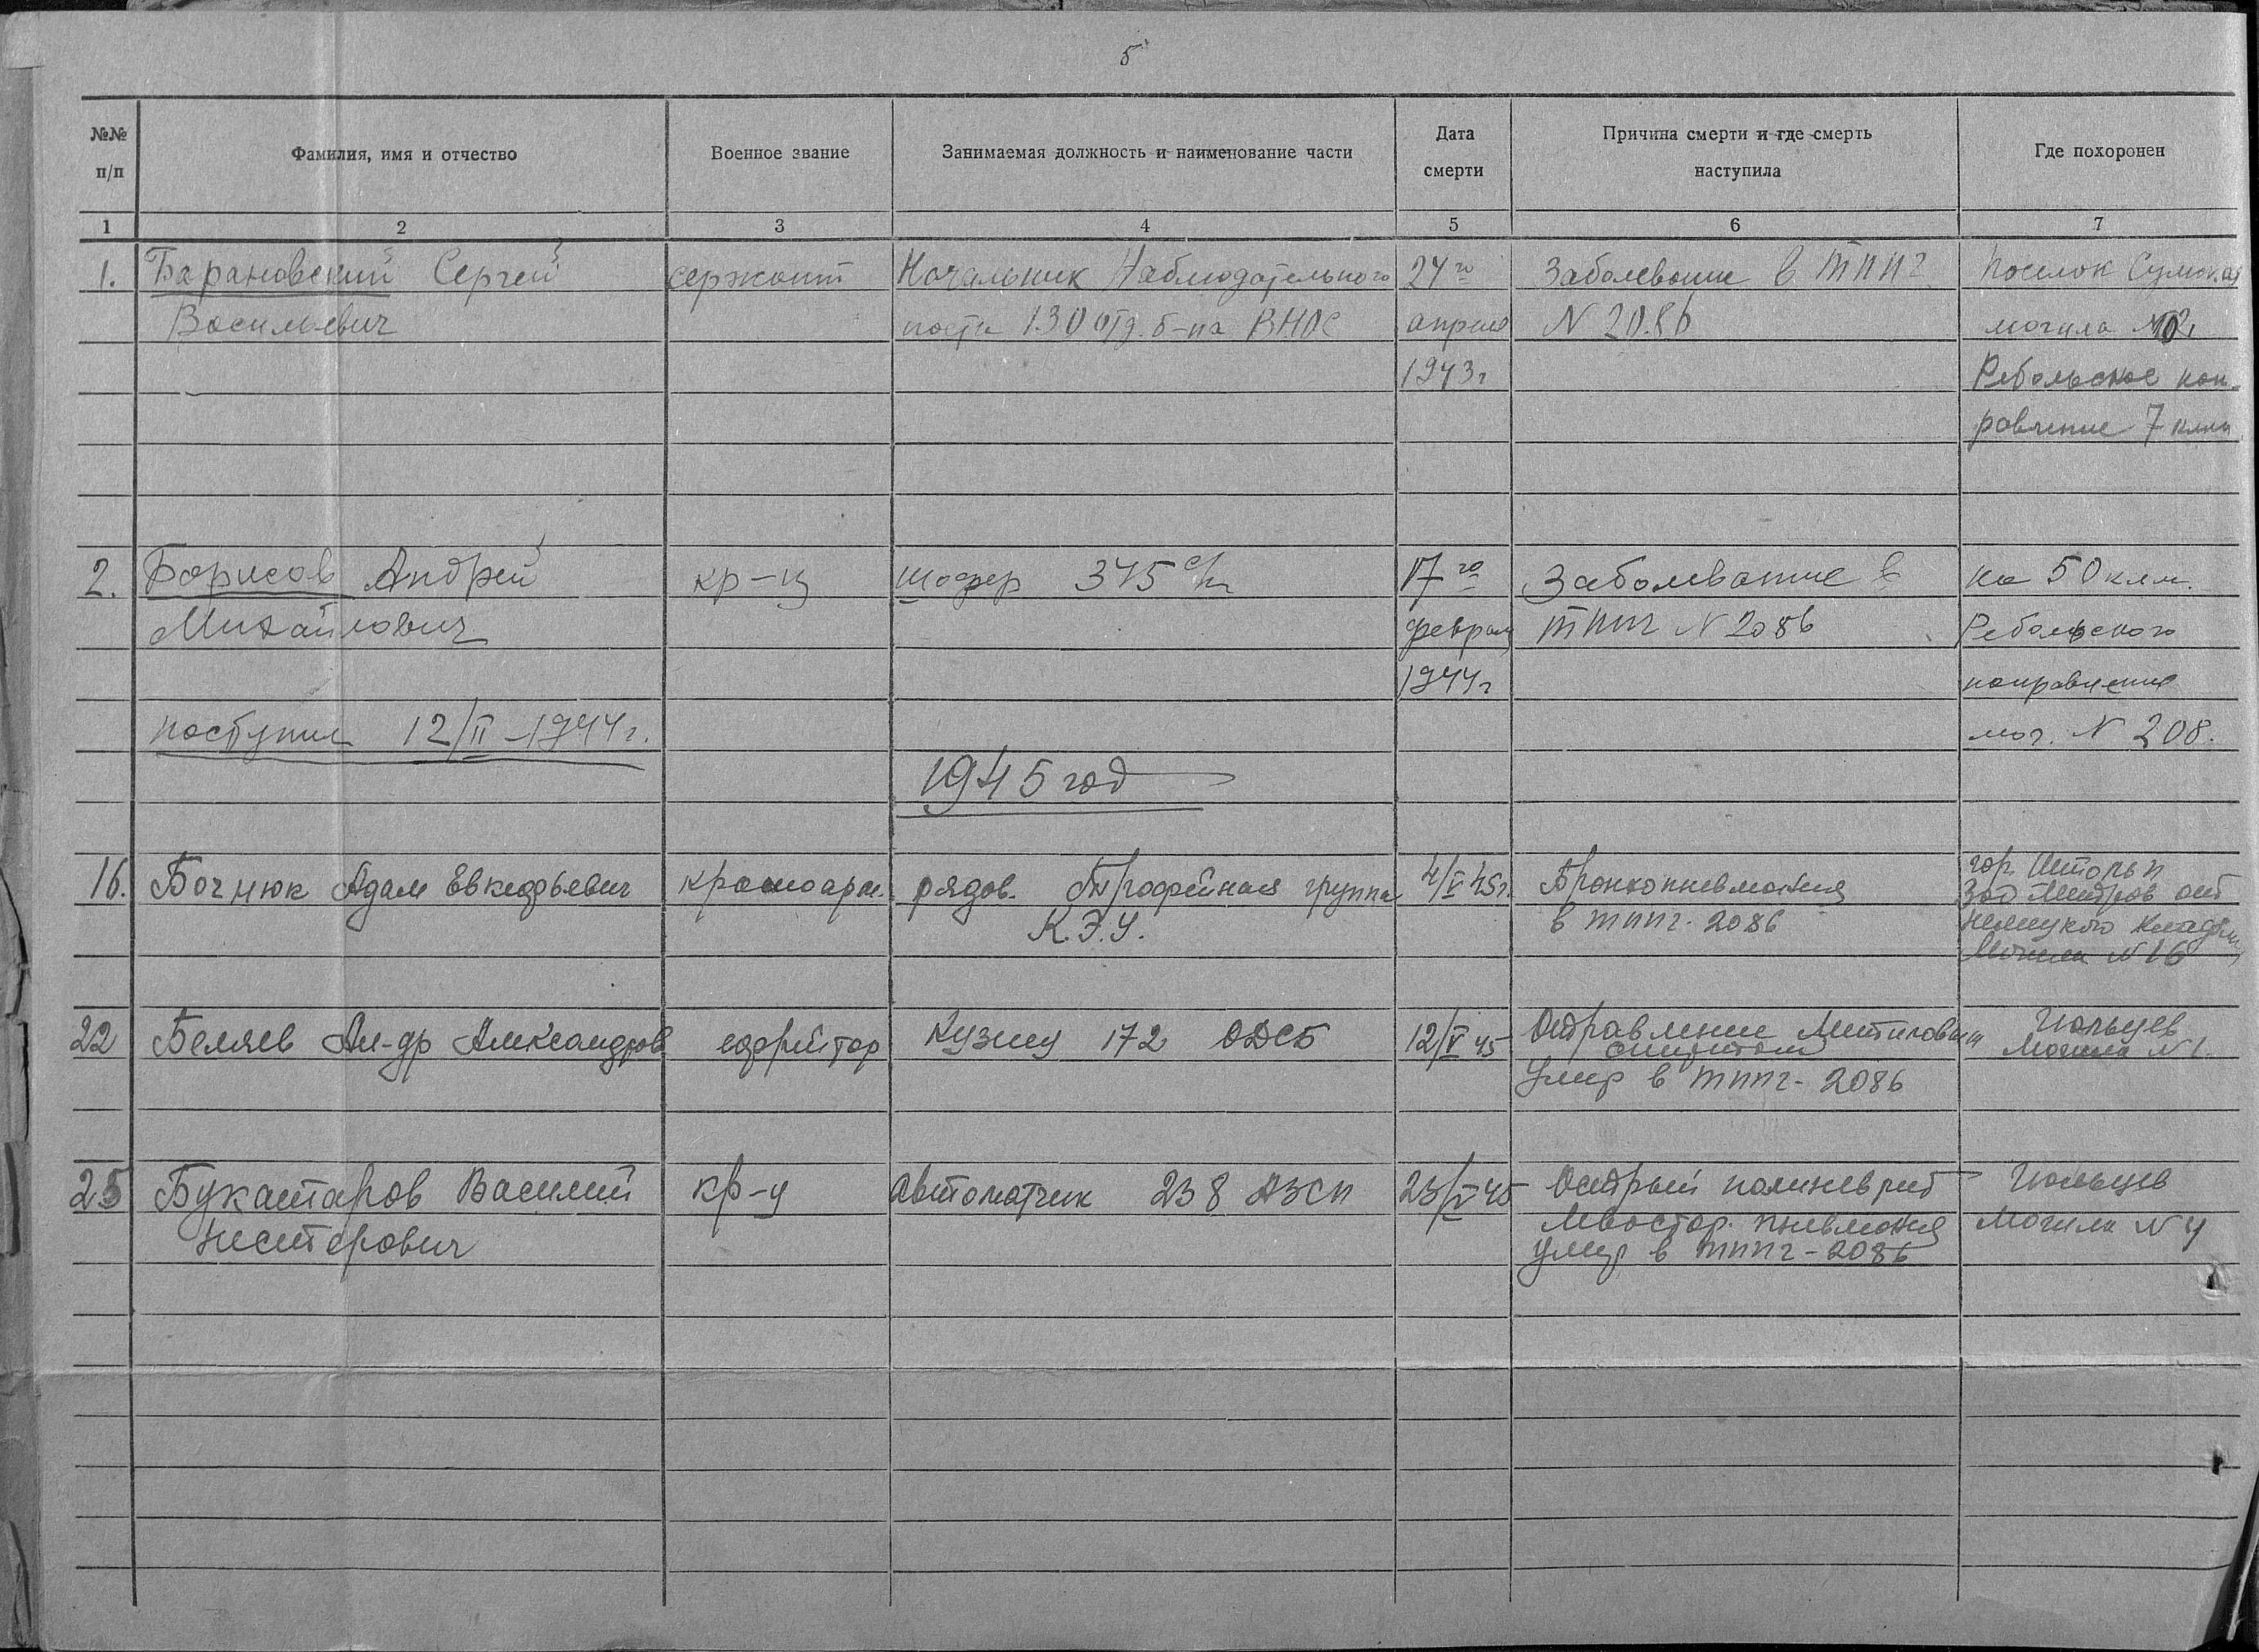 5
№№ п/п
Фамилия, имя и отчество
Военное звание
Занимаемая должность и наименование части
Дата смерти
Причина смерти и где смерть наступила
Где похоронен
1 2 3 4 5 6 7
1. Барановский Сергей сержант Начальник Наблюдательного 24го Заболевание в ТППГ Поселок
Васильевич поста 130 отд. б-на ВНОС апреля N 2086 могила
1943г Ребольское нап-
равление 7 клм
2. Борисов Андрей кр-ц шофер 345 с/п 17го Заболевание в на 50 клм.
Михайлович февраля ТППГ N 2086 Ребольского
1944г направления
поступил 12/II-1944г. мог. N 208.
1945 год
16. Бочнюк Адам красноарм. рядов. Трофейная группа 4/V 45г. Бронхопневмония гор.
К.Э.У. в ТППГ-2086
немецкого
Могила N 16
22 Беляев Ал-др Александров ефрейтор 172 ОДСБ 12/V 45 Отравление Метиловым Гюльцев
спиртом Могила N 1.
Умер в ТППГ-2086
25 Букатаров Василий кр-ц автоматчик 238 АЗСП 23/V 45 Острый полиневрит Гюльцев
Нестерович Левостор. пневмония Могила N 4
умер в ТППГ-2086